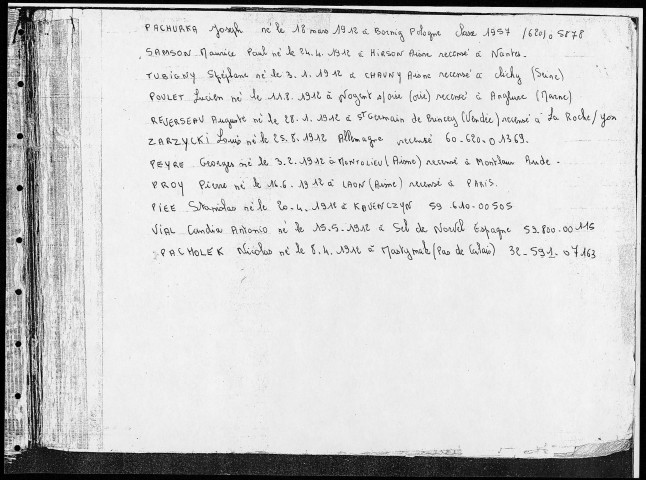 PACHURKA Joseph né le 18 mars 1912 à Bornig Pologne Saxe 1957 /620/0 5878
SAMSON Maurice Paul né le 24.4.1912 à HIRSON Aisne recensé à Nantes.
TUBIGNY Stéphane né le 3.1.1912 à CHAUNY Aisne recensé à Clichy (Seine)
POULET Lucien né le 11.8.1912 à Nogent s/oise (oise) recensé à Anglure (Marne)
REVERSEAU Auguste né le 28.1.1912 à St Germain de Princey (Vendée) recensé à La Roche/yon
ZARZYCKI Louis né le 25.8.1912 Allemagne recensé 60-620-01369.
PEYRE Georges né le 3.2.1912 à MONTOLIEU (Aisne) recensé à Montlaur Aude.
PROY Pierre né le 16.6.1912 à LAON (Aisne) recensé à PARIS.
PIEE Stanislas né le 20.4.1912 à KAWENCZYN 59.610-00505
VIAL Candia Antonio né le 15.5.1912 à Sel de Norvel Espagne 59.800-00115
PACHOLEK Nicolas né le 8.4.1912 à (Pas de Calais) 32-591-07163